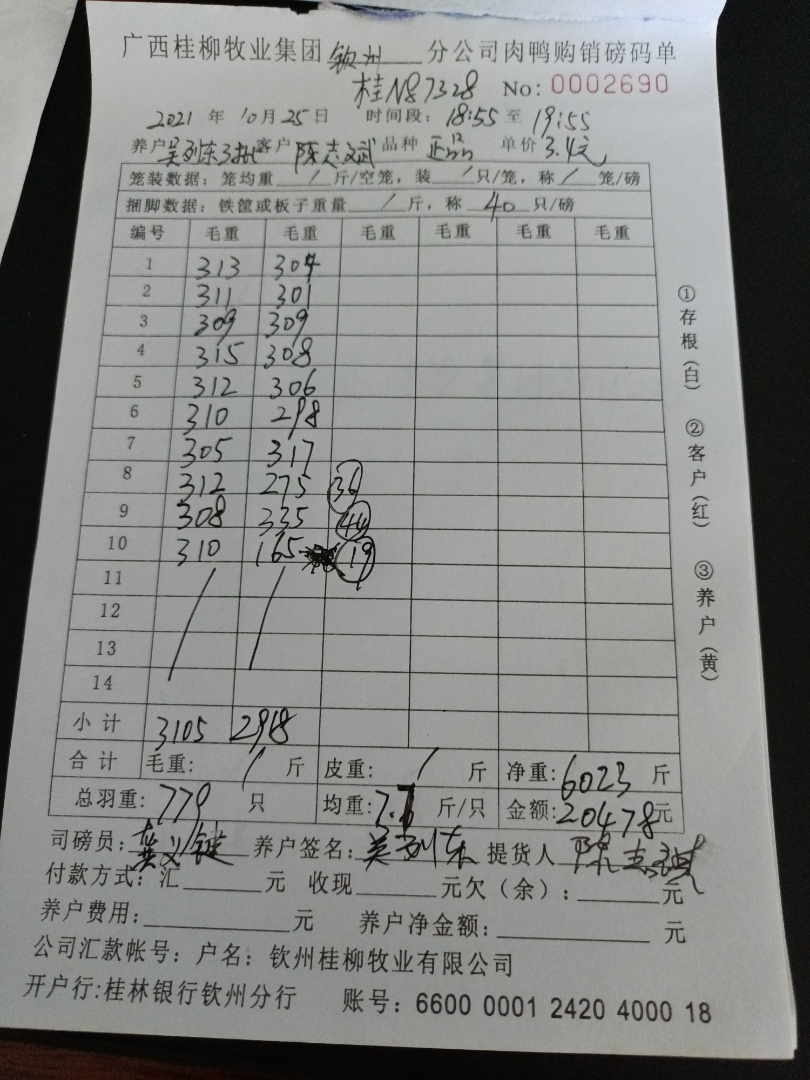 广西桂柳牧业集团 钦州 分公司肉鸭购销磅码单
桂N87328 No: 0002690
2021 年 10月 25日 时间段: 18:55 至 19:55
养户 吴列东3批 客户 陈志斌 品种 正品 单价 3.4元
笼装数据: 笼均重 / 斤/空笼, 装 / 只/笼, 称 / 笼/磅
捆脚数据: 铁筐或板子重量 / 斤, 称 40 只/磅
编号 毛重 毛重 毛重 毛重 毛重 毛重
1 313 304
2 311 301
3 309 309
4 315 308
5 312 306
6 310 298
7 305 317
8 312 275 36
9 308 335 44
10 310 165 19
11
12
13
14
小计 3105 2918
合计 毛重: / 斤 皮重: / 斤 净重: 6023 斤
总羽重: 779 只 均重: 7.7 斤/只 金额: 20478元
司磅员: 养户签名: 吴列东 提货人
付款方式: 汇 元 收现 元欠(余): 元
养户费用: 元 养户净金额: 元
公司汇款帐号: 户名: 钦州桂柳牧业有限公司
开户行:桂林银行钦州分行 账号: 6600 0001 2420 4000 18
①存根(白) ②客户(红) ③养户(黄)